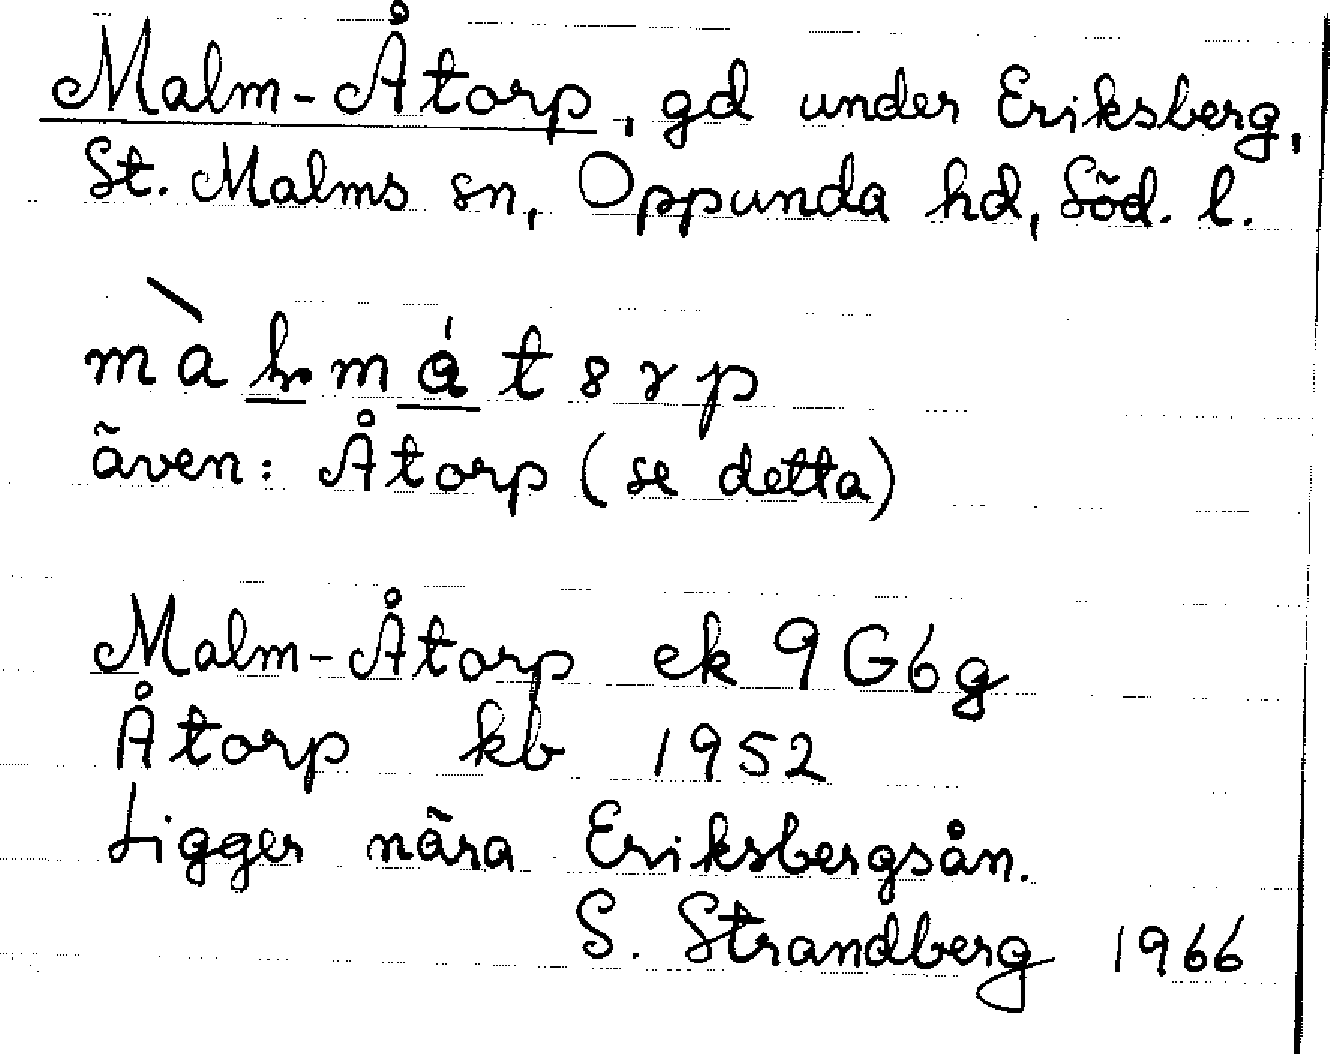 Malm-Åtorp, gd under Eriksberg,
St. Malms sn, Oppunda hd, Söd. l.
även: Åtorp (se detta)
Malm-Åtorp ek 9G6g
Åtorp kb 1952
Ligger nära Eriksbergsån.
S. Strandberg 1966